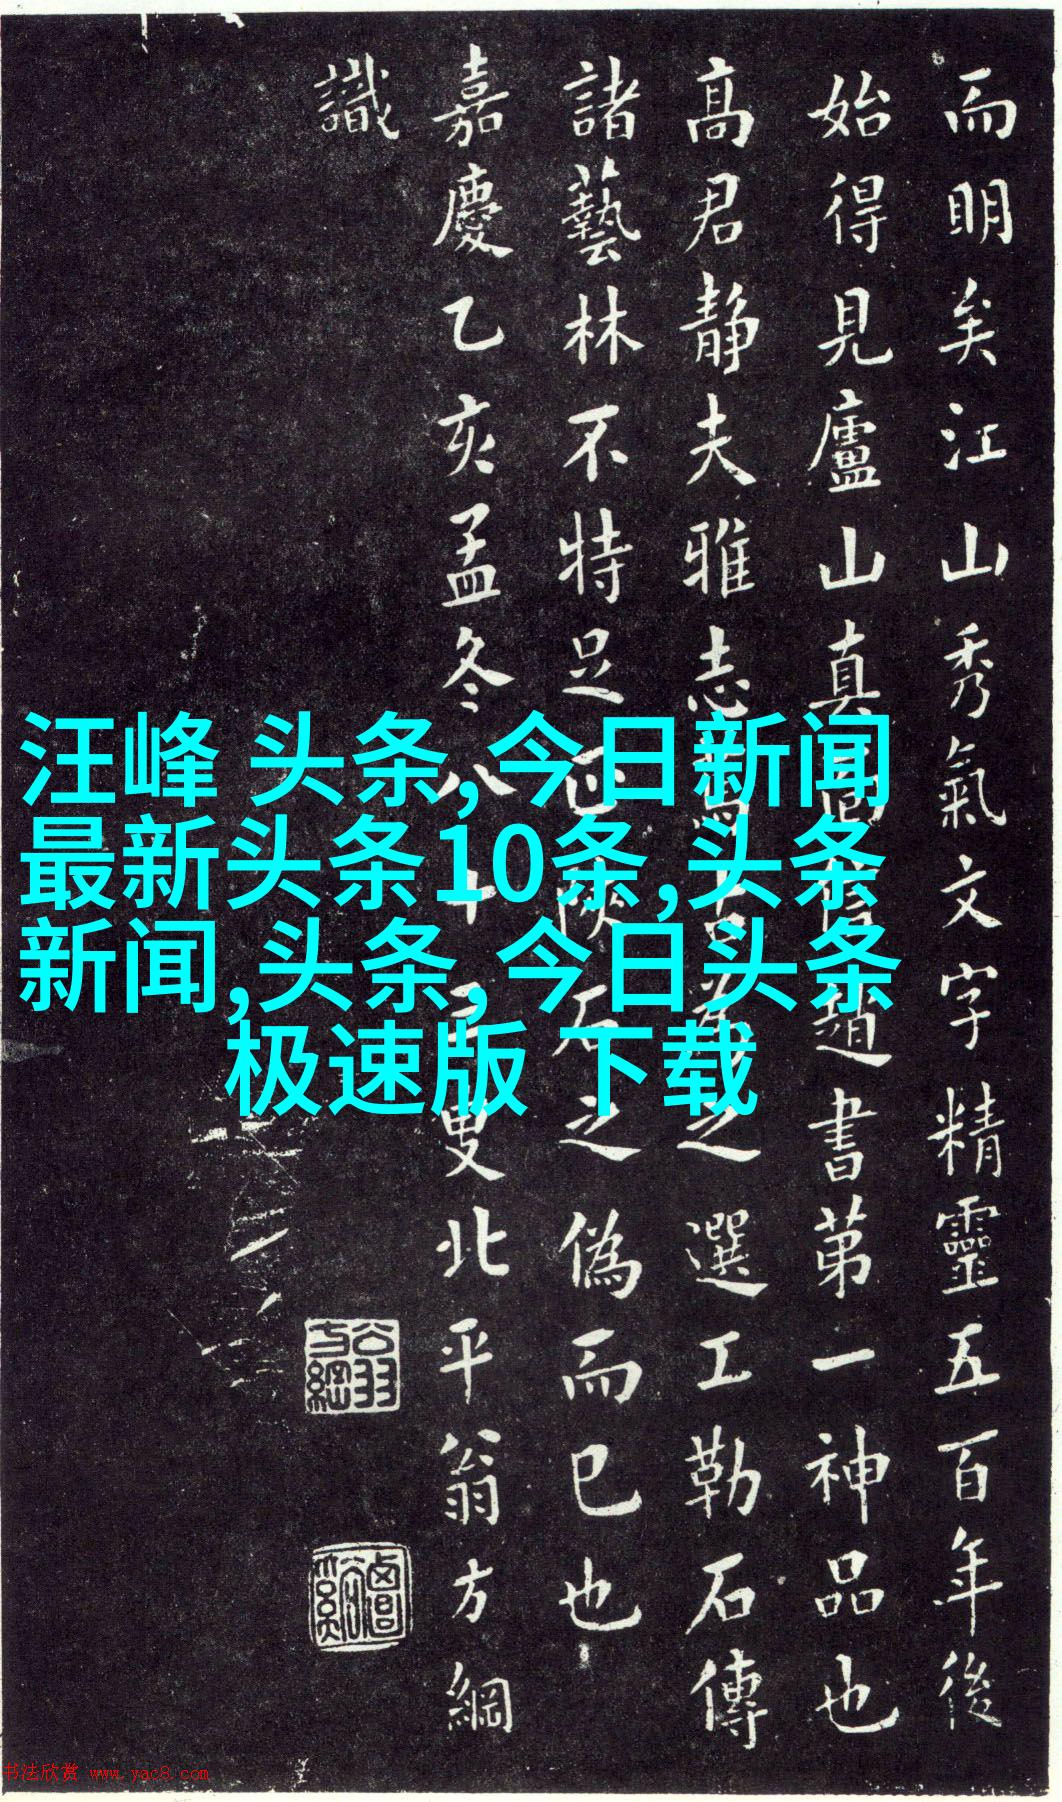 而明矣江山秀氣文字精靈五百年後
始得見廬山真趙書第一神品也
高君静夫雅志之選工勒石傳
諸藝林不特足正陝石之偽而已也
嘉慶乙亥孟冬八十三叟北平翁方綱
識
翁方綱
汪峰 头条,今日新闻
最新头条10条,头条
新闻,头条,今日头条
极速版 下载
书法欣赏 www.yac8.com